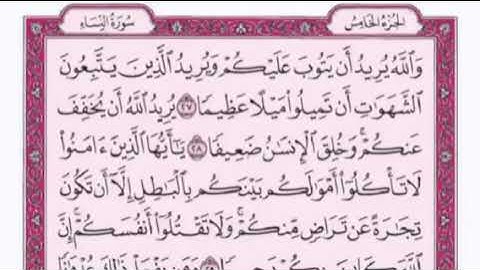 الجزء الخامس
سورة النساء
والله يريد أن يتوب عليكم ويريد الذين يتبعون
الشهوات أن تميلوا ميلا عظيما ٢٧ يريد الله أن يخفف
عنكم وخلق الإنسن ضعيفا ٢٨ يأيها الذين ءامنوا
لا تأكلوا أمولكم بينكم بالبطل إلا أن تكون
تجرة عن تراض منكم ولا تقتلوا أنفسكم إن